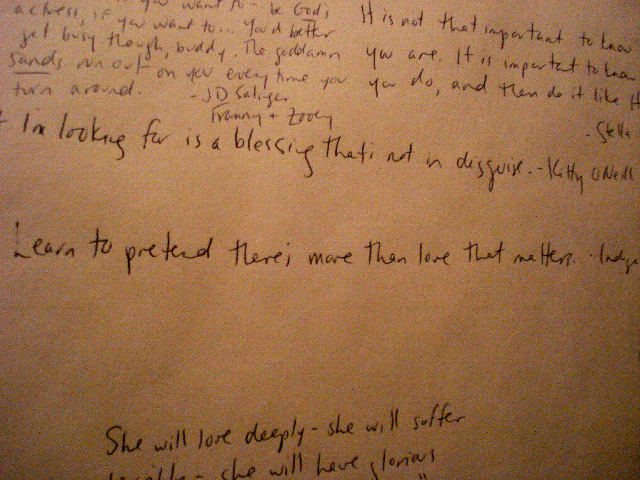 actress, if you want to - be God's
if you want to... You'd better
get busy though, buddy. The goddamn
sands run out on you every time you
turn around.
- JD Salinger
Franny + Zooey
It is not that important to know
you are. It is important to know
you do, and then do it like H
- Stella
I'm looking for is a blessing that's not in disguise. - Kitty O'Neill
Learn to pretend there's more than love that matters. - Indigo
She will love deeply - she will suffer
terribly - she will have glorious